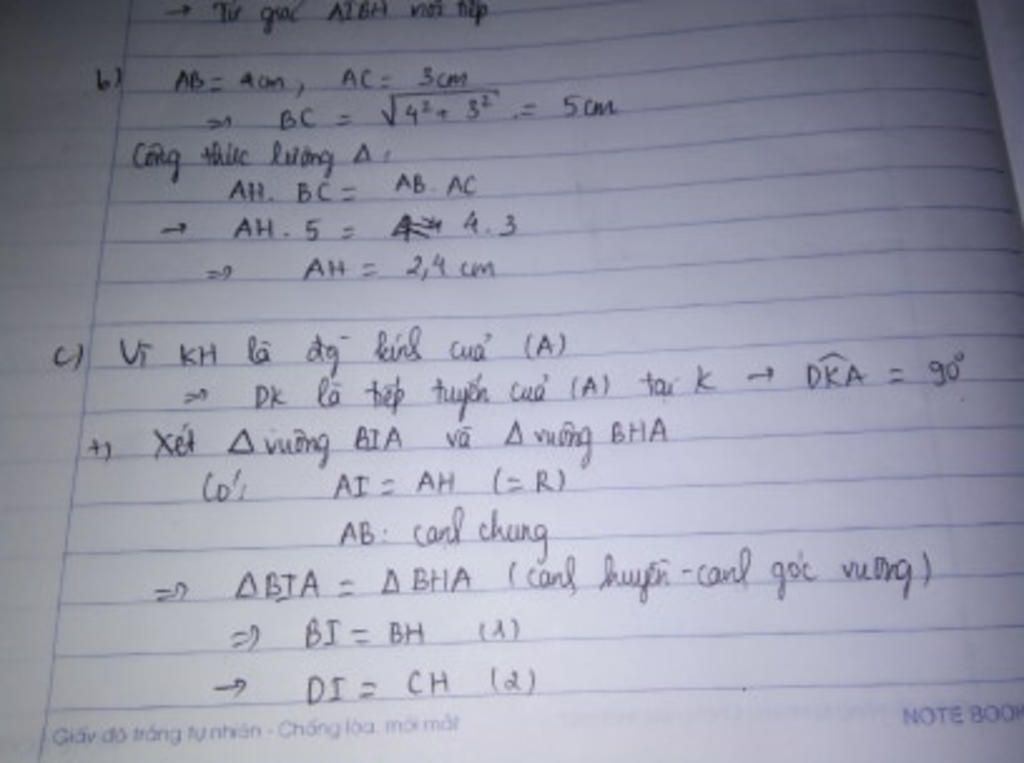 → Tứ giác AIBH nội tiếp
b) AB = 4cm, AC = 3cm
=> BC = √4² + 3² = 5cm
Công thức lượng Δ:
AH. BC = AB. AC
→ AH . 5 = 4.3
=> AH = 2,4 cm
c) Vì KH là đg kính cuả (A)
=> DK là tiếp tuyến cuả (A) tại K → DKA = 90°
+) Xét Δ vuông BIA và Δ vuông BHA
Có: AI = AH (= R)
AB: cạnh chung
=> ΔBIA = ΔBHA (cạnh huyền - cạnh góc vuông)
=> BI = BH (1)
→ DI = CH (2)
Giấy độ trắng tự nhiên - Chống lóa, mỏi mắt
NOTE BOOK